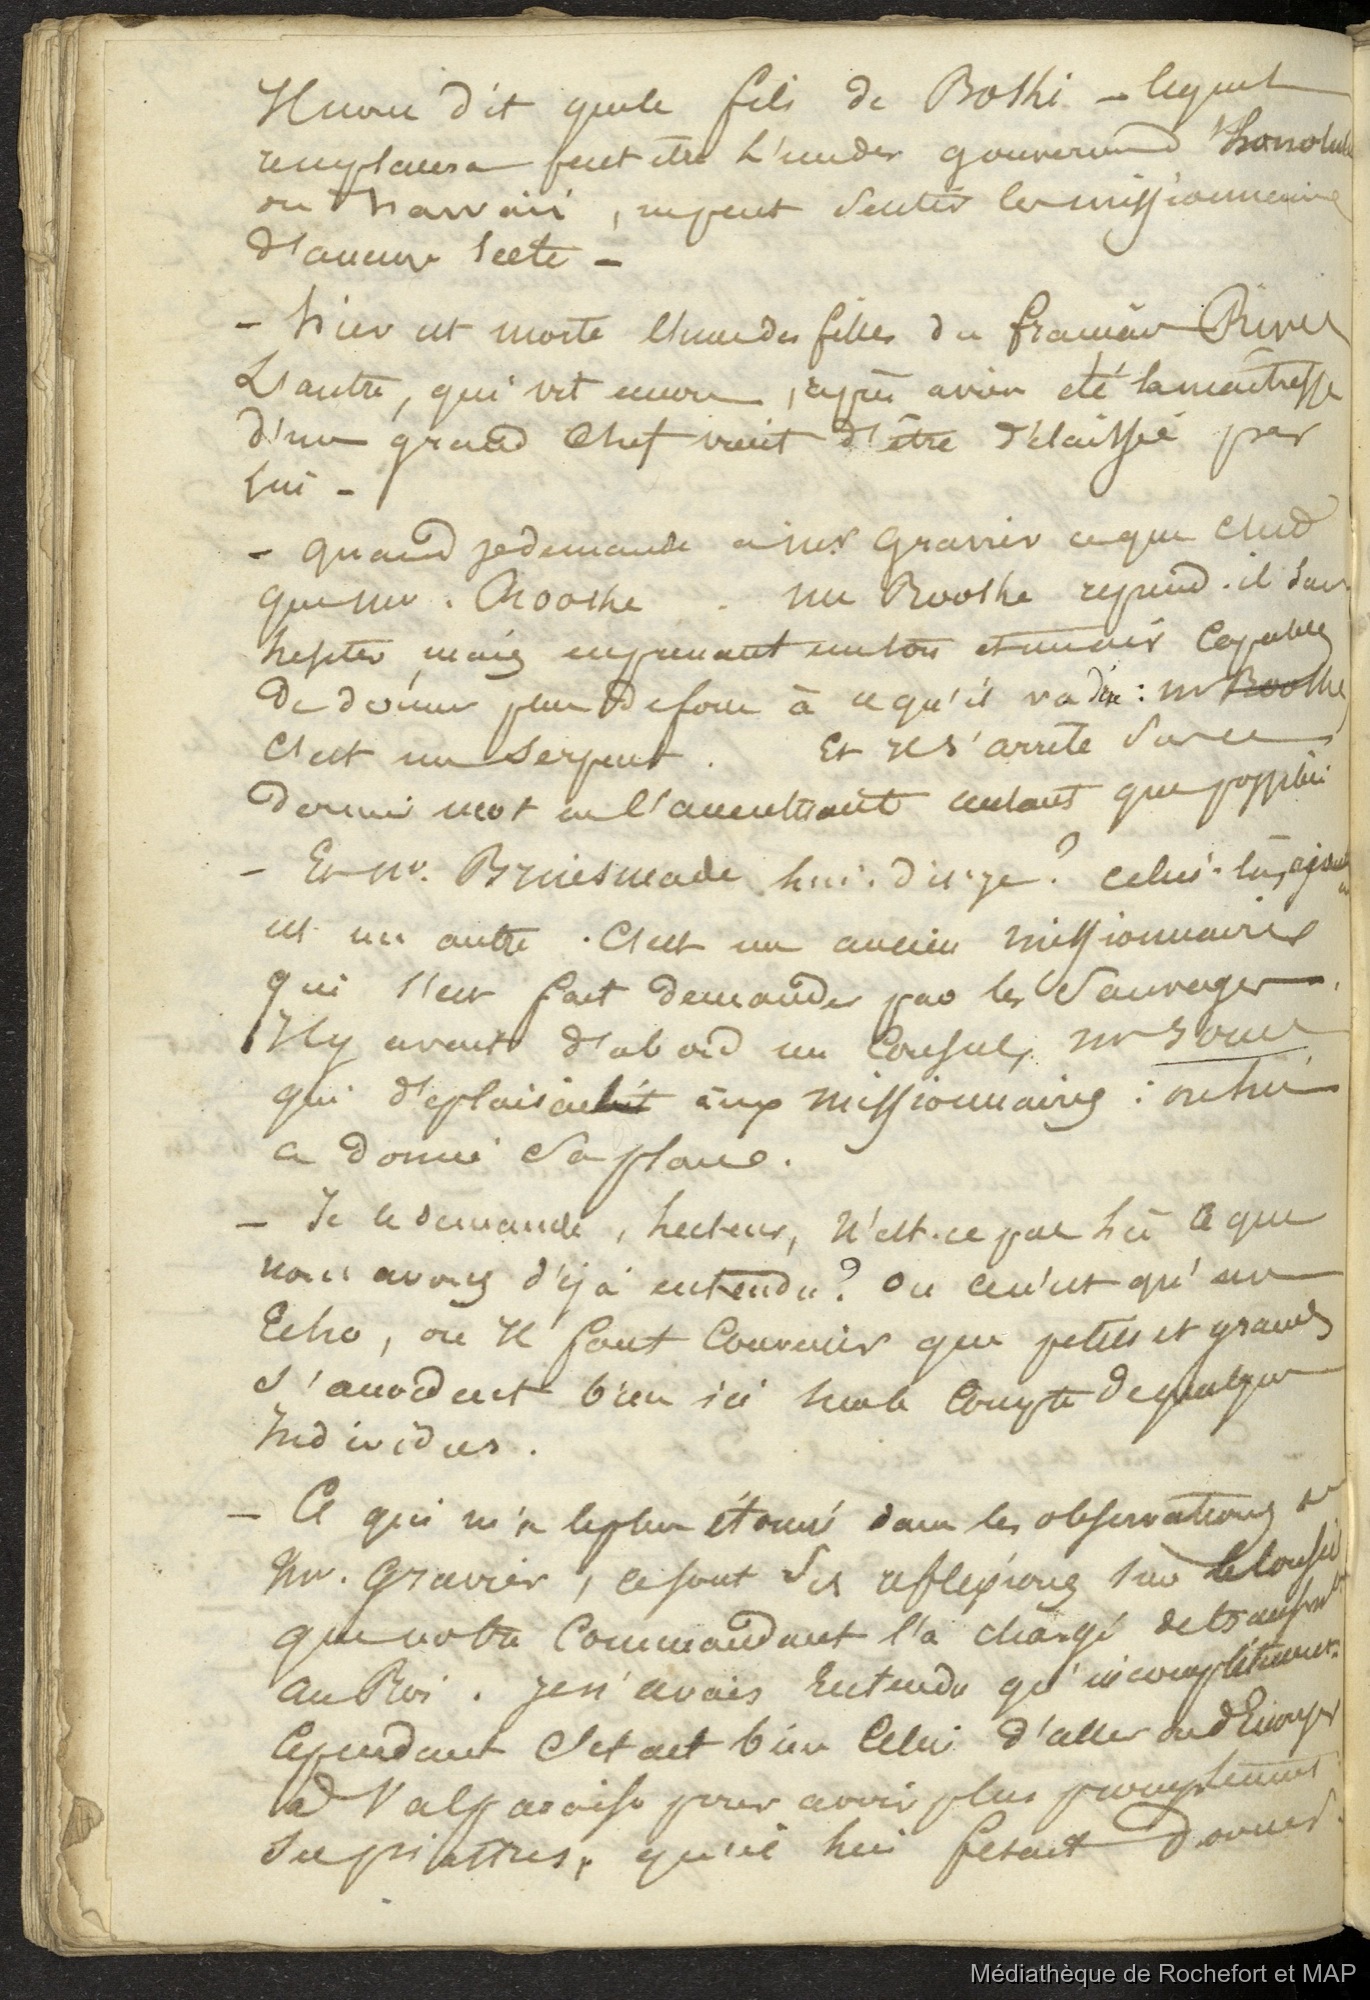 Il nous dit que le fils de Bothi - lequel
remplacera peut etre l'un des gouverneurs d'honolulu
ou hawaii, ne peut sentir les missionnaires
d'aucune secte -
- hier est morte l'une des filles du francais Rives
L'autre, qui vit encore, après avoir eté la maitresse
d'un grand Chef vient d'être délaissée par
lui -
- quand je demande a mr Gravier ce que c'est
que mr. Boothe . mr Boothe repond-il sans
hesiter, mais en prenant un ton et un air capables
de donner plus de force à ce qu'il va dire : mr Boothe
c'est un serpent . Et il s'arrete sur ce
dernier mot en l'accentuant autant que possible
- Et mr. Brinsmade lui dis-je ? celui-là, ajoute-t-il
est un autre . C'est un ancien missionnaire
qui s'est fait demander par les sauvages .
Il y avait d'abord un Consul, mr Jones
qui déplaisait aux missionnaires : on lui
a donné sa place .
- Je le demande, lecteur, n'est-ce pas là ce que
nous avons déjà entendu ? ou ce n'est qu'un
Echo, ou il faut convenir que petits et grands
s'accordent bien ici sur le compte de quelques
individus .
- Ce qui m'a le plus étonné dans les observations de
mr. Gravier, ce sont ses reflexions sur le conseil
que notre Commandant l'a chargé de transmettre
au Roi . je n'avais entendu qu'incomplétement .
Cependant c'etait bien celui d'aller ou d'Envoyer
à Valparaiso pour avoir plus promptement
ses piastres, qu'il lui fesait donner .
Médiathèque de Rochefort et MAP